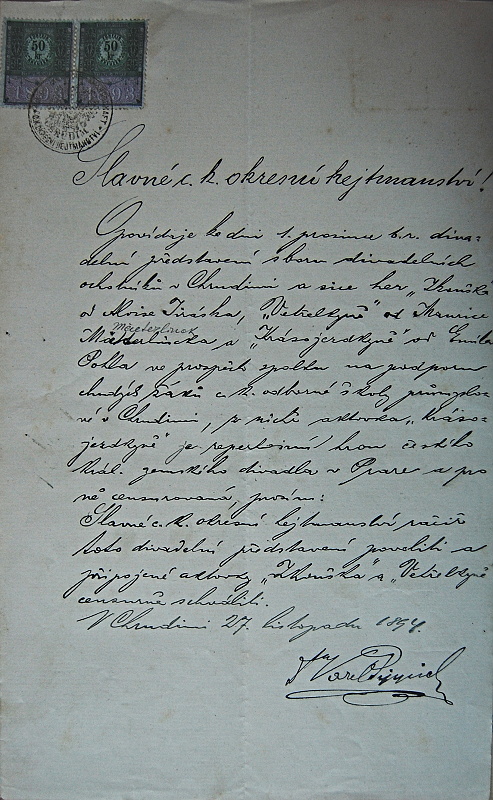 50 50
1893 1893
C.K. OKRESNÍ HEJTMANSTVÍ
Slavné c. k. okresní hejtmanství!
Opovídaje ke dni 1. prosince b. r. diva-
delní představení sboru divadelních
ochotníků v Chrudimi a sice her „Zkouška"
od Aloise Jiráska, „Vetřelkyně" od Maurice
Maeterlinck
Maeterlincka a „Krasojezdkyně" od Emila
Pohla ve prospěch spolku na podporu
chudých žáků c. k. odborné školy průmyslo-
vé v Chrudimi, z nichž aktovka „Kraso-
jezdkyně" je repertoirní hrou českého
král. zemského divadla v Praze a pro
ně censurovaná, prosím:
Slavné c. k. okresní hejtmanství račiž
toto divadelní představení povoliti a
připojené aktovky „Zkouška" a „Vetřelkyně
censurně schváliti.
V Chrudimi 27. listopadu 1894.
Karel Pippich